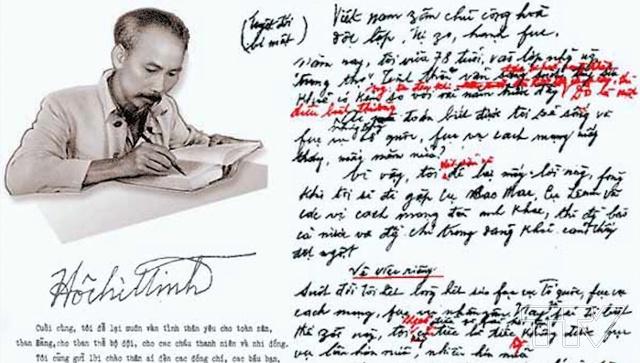 (Tuyệt đối
bí mật)
Việt nam zân chủ cộng hoà
độc lập, tự zo, hạnh fúc.
Năm nay, tôi vừa 78 tuổi, vào lớp những
"trung thọ". Tinh thần vẫn
khoẻ so với vài năm trước đây. Đó là một
điều bình thường
đoán biết được tôi sẽ sống và
fục vụ Tổ quốc, fục vụ cách mạng mấy
tháng, mấy năm nữa?
Vì vậy, tôi để lại mấy lời này, fòng
khi tôi sẽ đi gặp cụ Các Mác, Cụ Lênin và
các vị cách mạng đàn anh khác, thì đồng bào
cả nước và đồng chí trong Đảng khỏi cảm thấy
đột ngột.
Về việc riêng
Suốt đời tôi hết lòng hết sức fục vụ Tổ quốc, fục vụ
cách mạng, fục vụ nhân zân. Nay zù
thế zới này, tôi tiếc là tiếc không được fục
vụ lâu hơn nữa, nhiều hơn nữa
Hồ chí Minh
Cuối cùng, tôi để lại muôn vàn tình thân yêu cho toàn zân,
toàn Đảng, cho toàn thể bộ đội, cho các cháu thanh niên và nhi đồng.
Tôi cũng gửi lời chào thân ái đến các đồng chí, các bầu bạn,